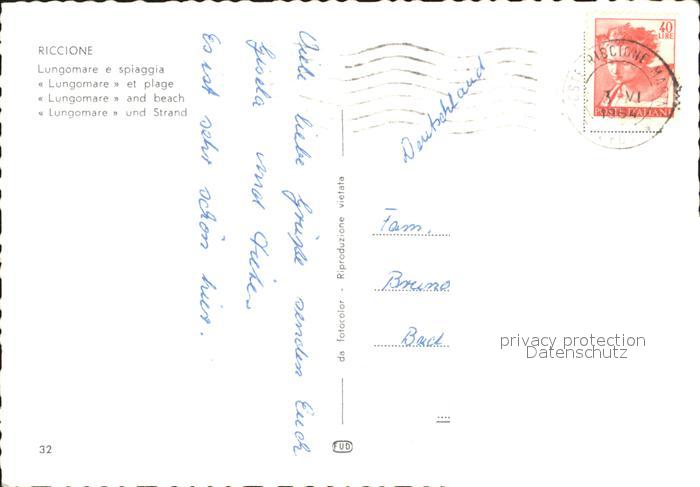 RICCIONE
Lungomare e spiaggia
« Lungomare » et plage
« Lungomare » and beach
« Lungomare » und Strand
Viele liebe Grüße senden Euch
Gisela und
Es ist sehr schön hier.
da fotocolor - Riproduzione vietata
Deutschland
Fam.
Bruno
40
LIRE
POSTE ITALIANE
RICCIONE
VI
privacy protection
Datenschutz
32
FUD